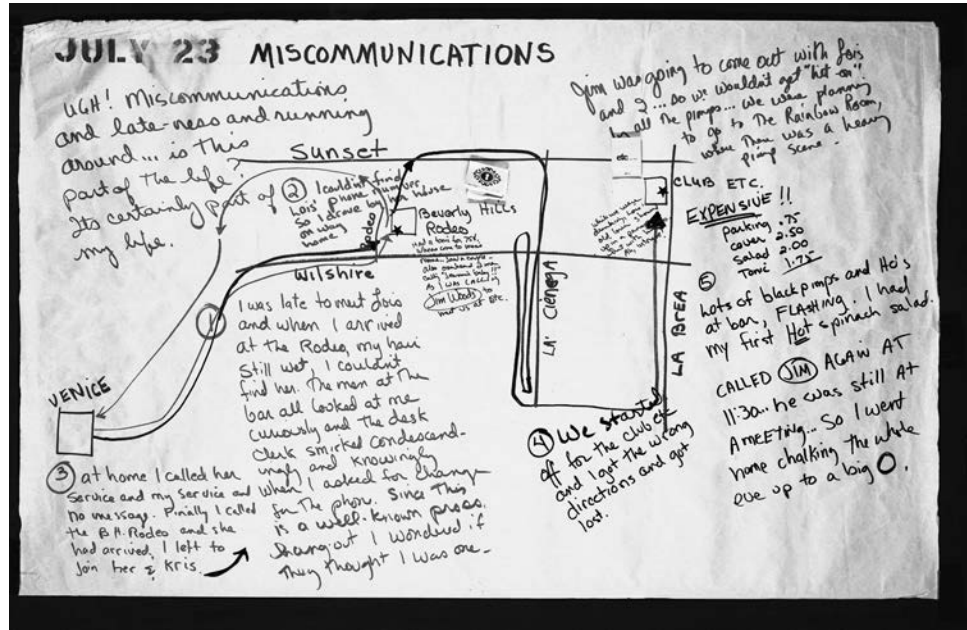 JULY 23 MISCOMMUNICATIONS
UGH! Miscommunications
and late-ness and running
around... is this
part of the life?
Its certainly part of
my life.
Jim was going to come out with Lois
and I... so we wouldn't get "hit on"
by all the pimps... we were planning
to go to The Rainbow Room,
where there was a heavy
pimp scene.
Sunset
② I couldn't find
Lois' phone number
So I drove by her house
on way
home
Rodeo
Beverly Hills
Rodeo
Had a tonic for 75¢
Jim Woods to
meet us at etc.
Wilshire
etc
CLUB ETC.
EXPENSIVE!!
Parking .75
cover 2.50
Salad 2.00
Tonic 1.75
LA CIENEGA
LA BREA
VENICE
①
I was late to meet Lois
and when I arrived
at the Rodeo, my hair
still wet, I couldn't
find her. The men at the
bar all looked at me
curiously and the desk
clerk smirked condescend-
ingly and knowingly
when I asked for change
for the phone. Since this
is a well-known pross.
hangout I wondered if
they thought I was one-
③ at home I called her
service and my service and
no message. Finally I called
the B.H. Rodeo and she
had arrived, I left to
join her & Kris.
④ We started
off for the club etc
and I got the wrong
directions and got
lost.
⑤
Lots of black pimps and Ho's
at bar, FLASHING. I had
my first Hot spinach salad.
CALLED JIM AGAIN AT
11:30... he was still AT
A MEETING... So I went
home chalking the whole
eve up to a big O.